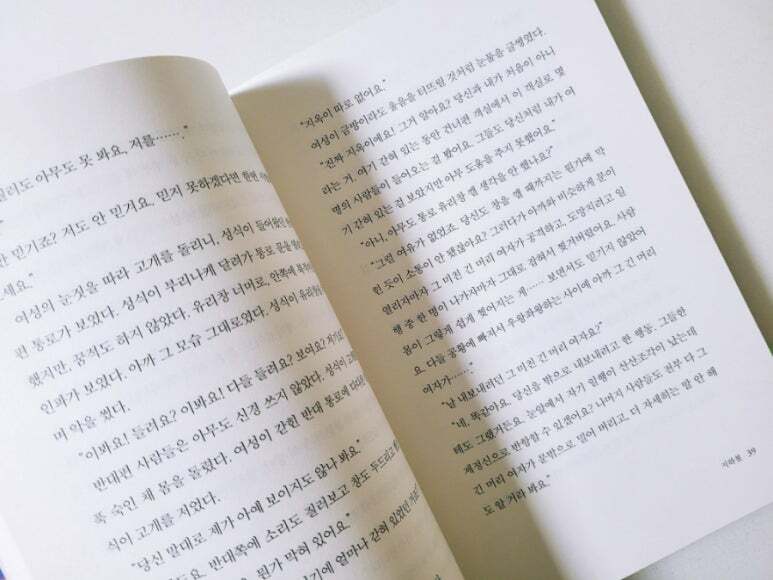 소리도 아무도 못 봐요, 저를……."
안 믿기죠? 저도 안 믿기요. 믿지 못하겠다면 한번
세요."
여성의 눈짓을 따라 고개를 돌리니, 성식이 들어왔던
편 통로가 보였다. 성식이 부리나케 달려가 통로 끝을
했지만, 꿈쩍도 하지 않았다. 유리창 너머로, 안쪽에
인파가 보였다. 아까 그 모습 그대로였다. 성식이 유리창
며 악을 썼다.
"이봐요! 들려요? 이봐요! 다들 들려요? 보여요?
반대편 사람들은 아무도 신경 쓰지 않았다. 성식이
푹 숙인 채 몸을 돌렸다. 여성이 갇힌 반대 통로에
식이 고개를 저었다.
"당신 말대로 제가 아예 보이지도 않나 봐요."
도요. 반대쪽에 소리도 질러보고 창도 두드리고
뭔가 막혀 있어요."
기에 얼마나 갇혀 있었던 거죠?"
"지옥이 따로 없어요."
여성이 금방이라도 울음을 터뜨릴 것처럼 눈물을 글썽였다.
"진짜 지옥이에요! 그거 알아요? 당신과 내가 처음이 아니
라는 거. 여기 갇혀 있는 동안 건너편 객실에서 이 객실로 몇
명의 사람들이 들어오는 걸 봤어요. 그들도 당신처럼 내가 여
기 갇혀 있는 걸 보았지만 아무 도움을 주지 못했어요."
"아니, 아무도 통로 유리창 깰 생각을 안 했나요?"
"그럴 여유가 없었죠. 당신도 창을 깰 때까지는 뭔가에 막
힌 듯이 소통이 안 됐잖아요? 그러다가 아까와 비슷하게 문이
열리자마자 그 미친 긴 머리 여자가 공격하고, 도망치려고 일
행 중 한 명이 나가자마자 그대로 감해서 찢겨버렸어요. 사람
몸이 그렇게 쉽게 찢어지는 게…… 보면서도 믿기지 않았어
요. 다들 공황에 빠져서 우왕좌왕하는 사이에 아까 그 긴 머리
여자가……."
"날 내보내려던 그 미친 긴 머리 여자요?"
"네, 똑같아요. 당신을 밖으로 내보내려고 한 행동, 그들한
테도 그랬거든요. 눈앞에서 자기 일행이 산산조각이 났는데
제정신으로 반항할 수 있겠어요? 나머지 사람들도 전부 다 그
긴 머리 여자가 문밖으로 밀어 버리고. 더 자세하는 말 안 해
도 알 거라 봐요."
지하철 39